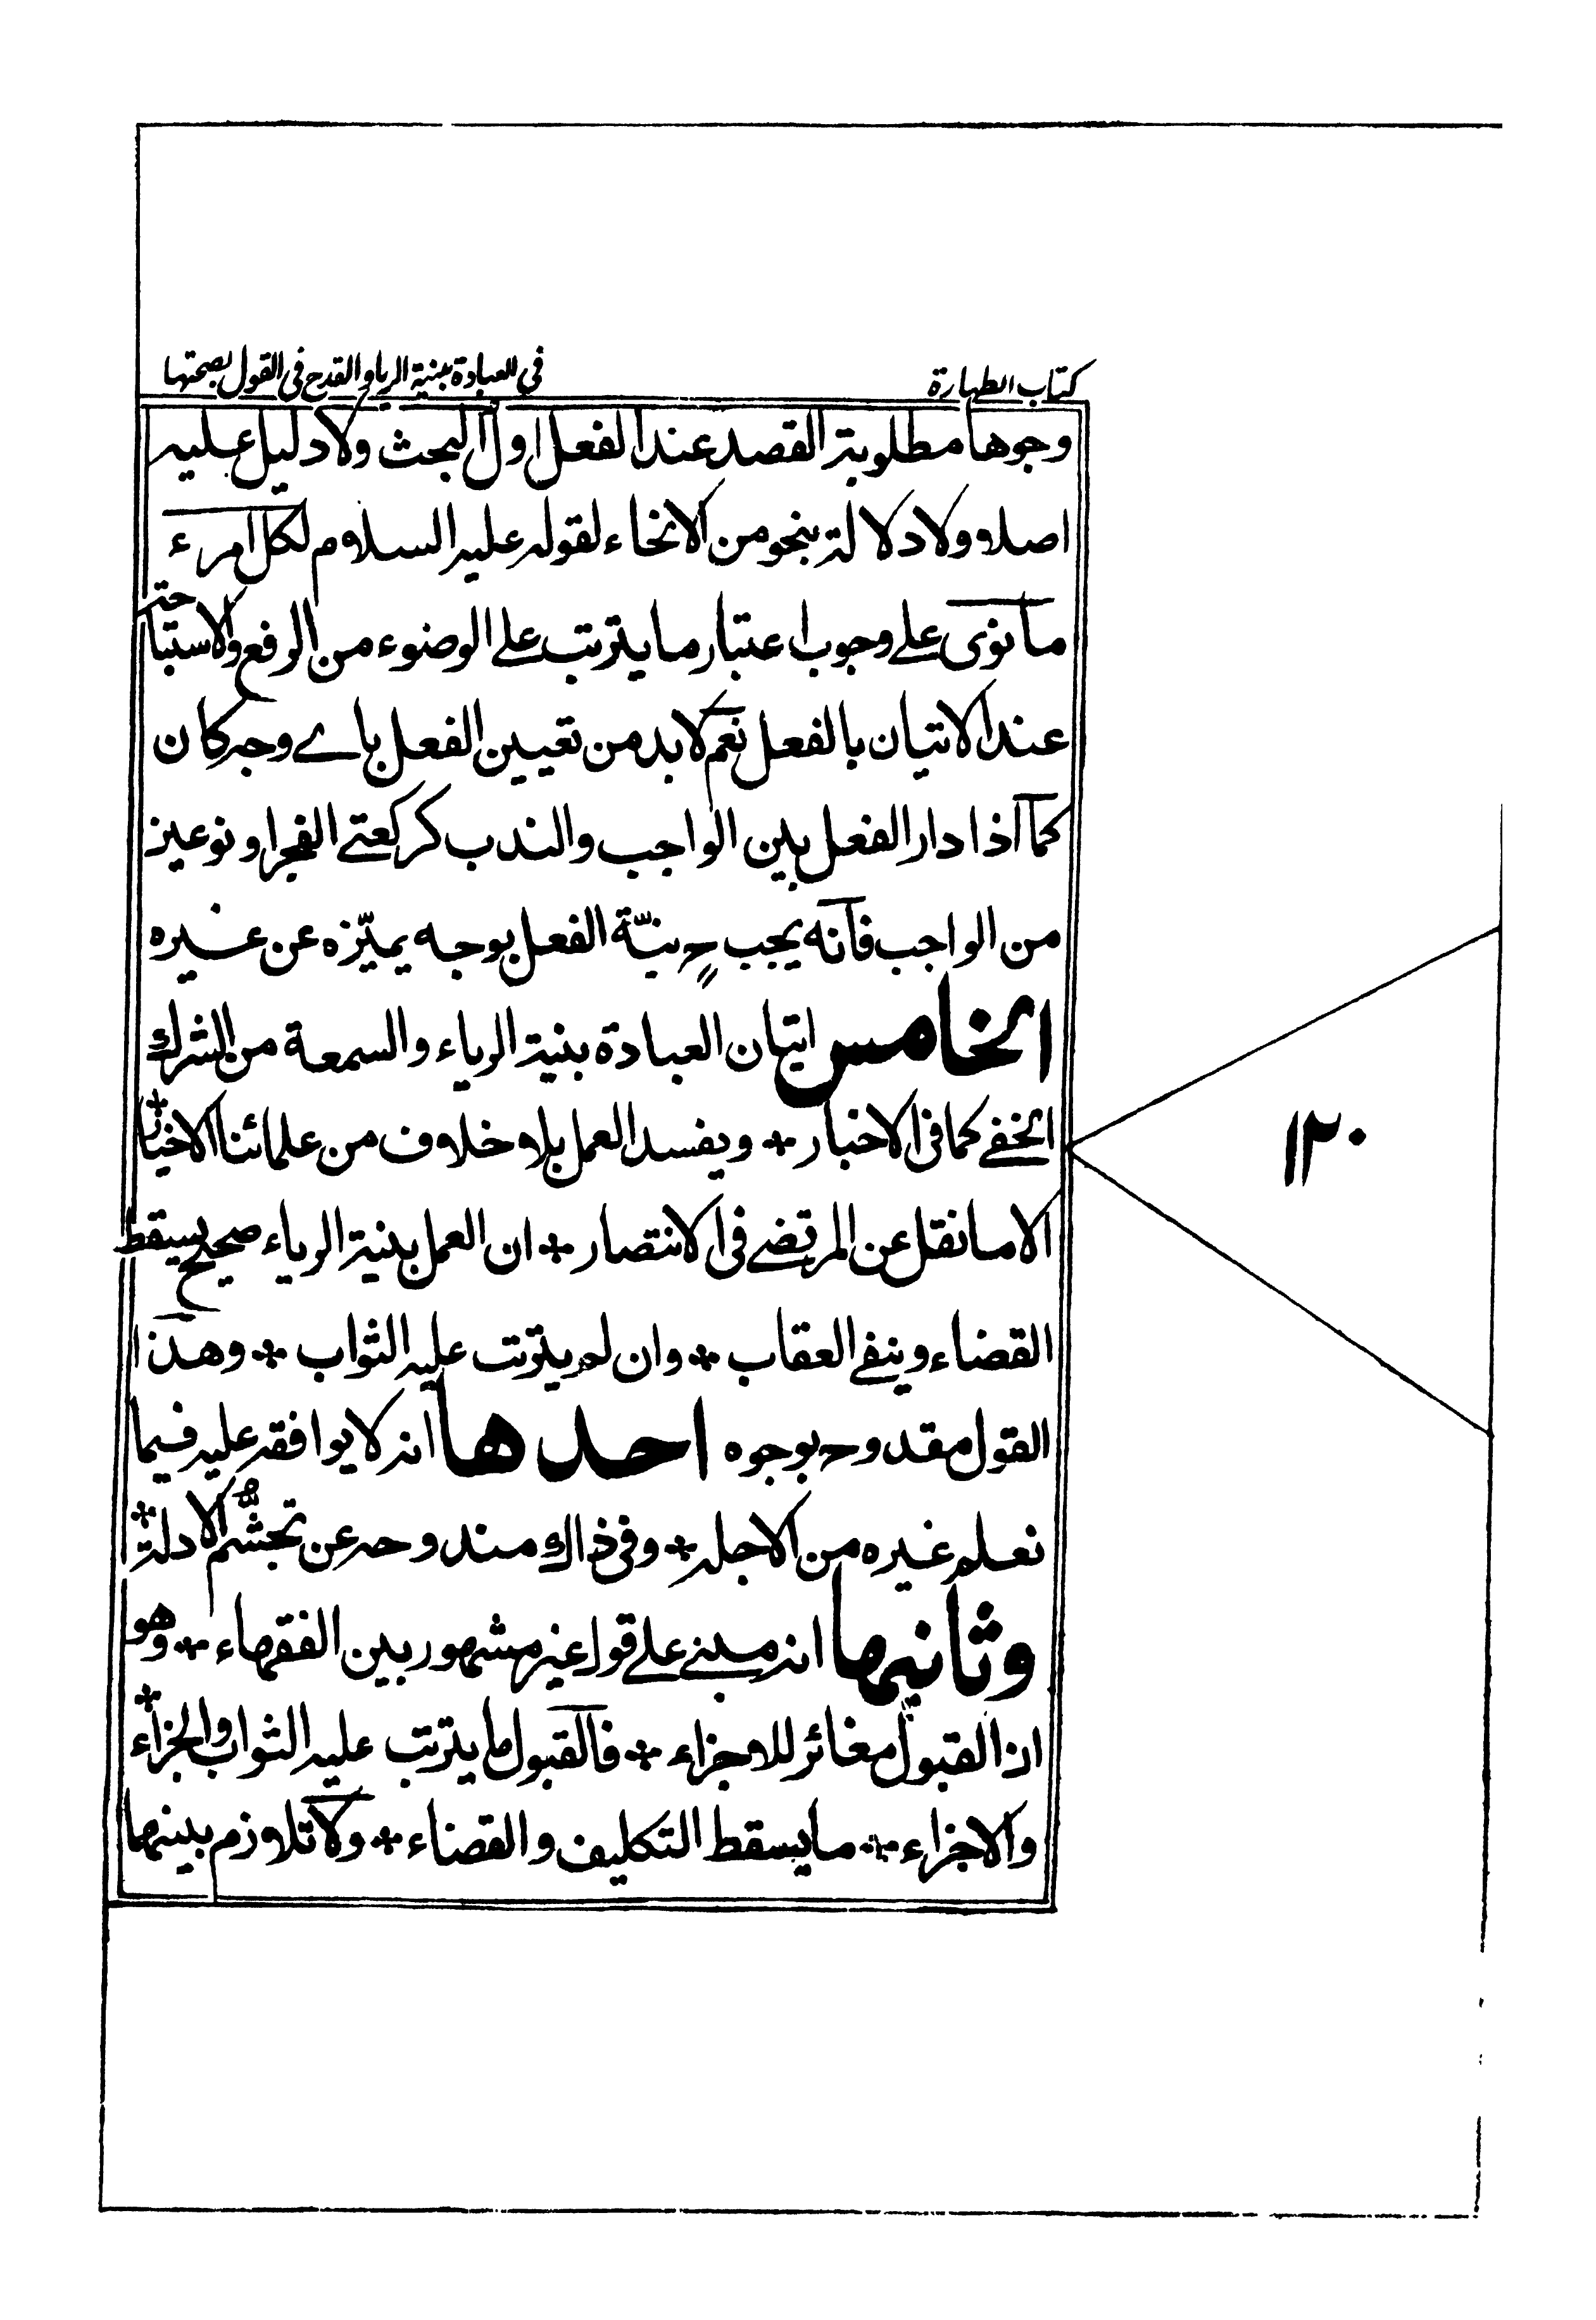 كتاب الطهارة
في العبادة بنية الريا والقدح في القول بصحتها
وجوها مطلوبة القصد عند الفعل اول البحث ولا دليل عليه
اصلا ولا دلالة بنحو من الانحاء لقوله عليه السلام لكل امرء
ما نوى على وجوب اعتبار ما يترتب على الوضوء من الرفع والاستباحة
عند الاتيان بالفعل نعم لا بد من تعيين الفعل باے وجه كان
كما اذا دار الفعل بين الواجب والندب كركعتے الفجر او نوعين
من الواجب فانه يجب ح نيّة الفعل بوجه يميّزه عن غيره
الخامس اتيان العبادة بنية الرياء والسمعة من الشرك
الخفے كما في الاخبار * ويفسد العمل بلا خلاف من علمائنا الاخيار *
الا ما نقل عن المرتضے في الانتصار * ان العمل بنية الرياء صحيح يسقط
القضاء وينفے العقاب * وان لم يترتب عليه الثواب * وهذا
القول مقدوح بوجوه احدها انه لا يوافقه عليه فيما
نعلم غيره من الاجله * وفي ذالك مندوحه عن تجشّم الادلة *
وثانيها انه مبنے علے قول غير مشهور بين الفقهاء * وهو
ان القبول مغائر للاجزاء * فالقبول ما يترتب عليه الثواب والجزاء *
والاجزاء * ما يسقط التكليف والقضاء * ولا تلازم بينهما
١٢٠